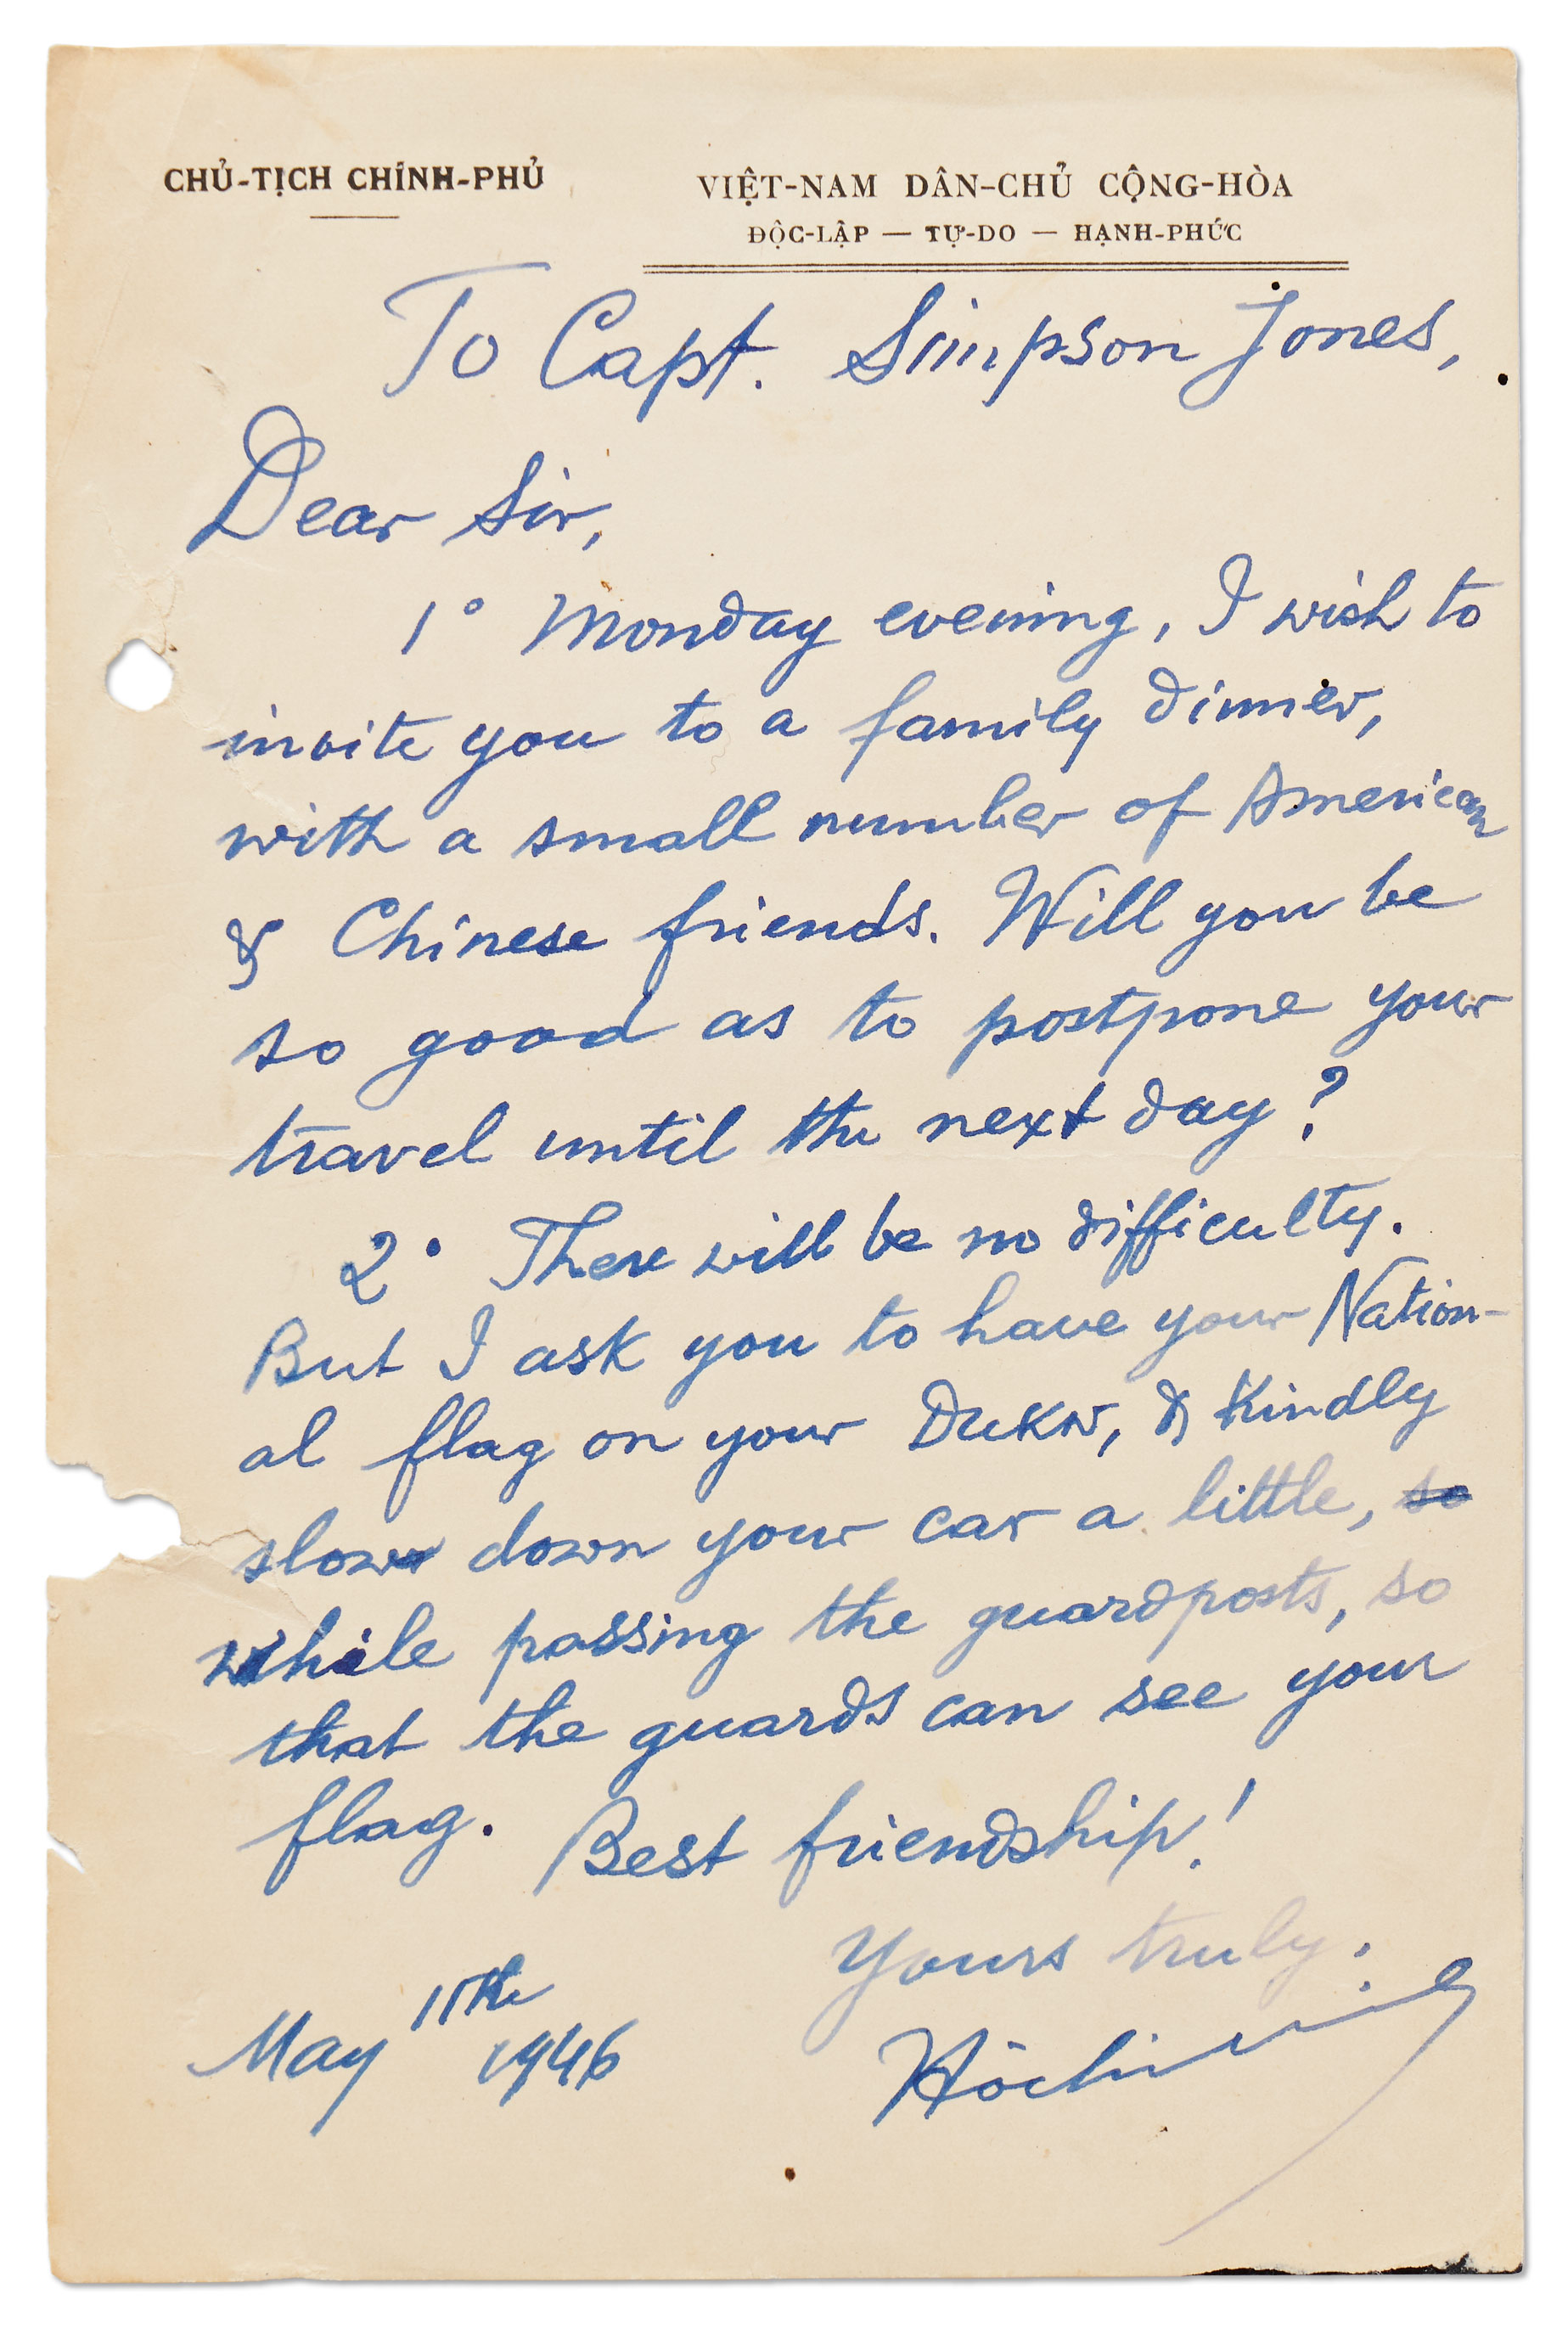 CHỦ-TỊCH CHÍNH-PHỦ
VIỆT-NAM DÂN-CHỦ CỘNG-HÒA
ĐỘC-LẬP — TỰ-DO — HẠNH-PHÚC
To Capt. Simpson Jones,
Dear Sir,
1° Monday evening, I wish to
invite you to a family dinner,
with a small number of American
& Chinese friends. Will you be
so good as to postpone your
travel until the next day?
2° There will be no difficulty.
But I ask you to have your Nation-
al flag on your Dukw, & kindly
slow down your car a little, so
while passing the guardposts, so
that the guards can see your
flag. Best friendship!
Yours truly.
May 11th 1946
Hồchiminh